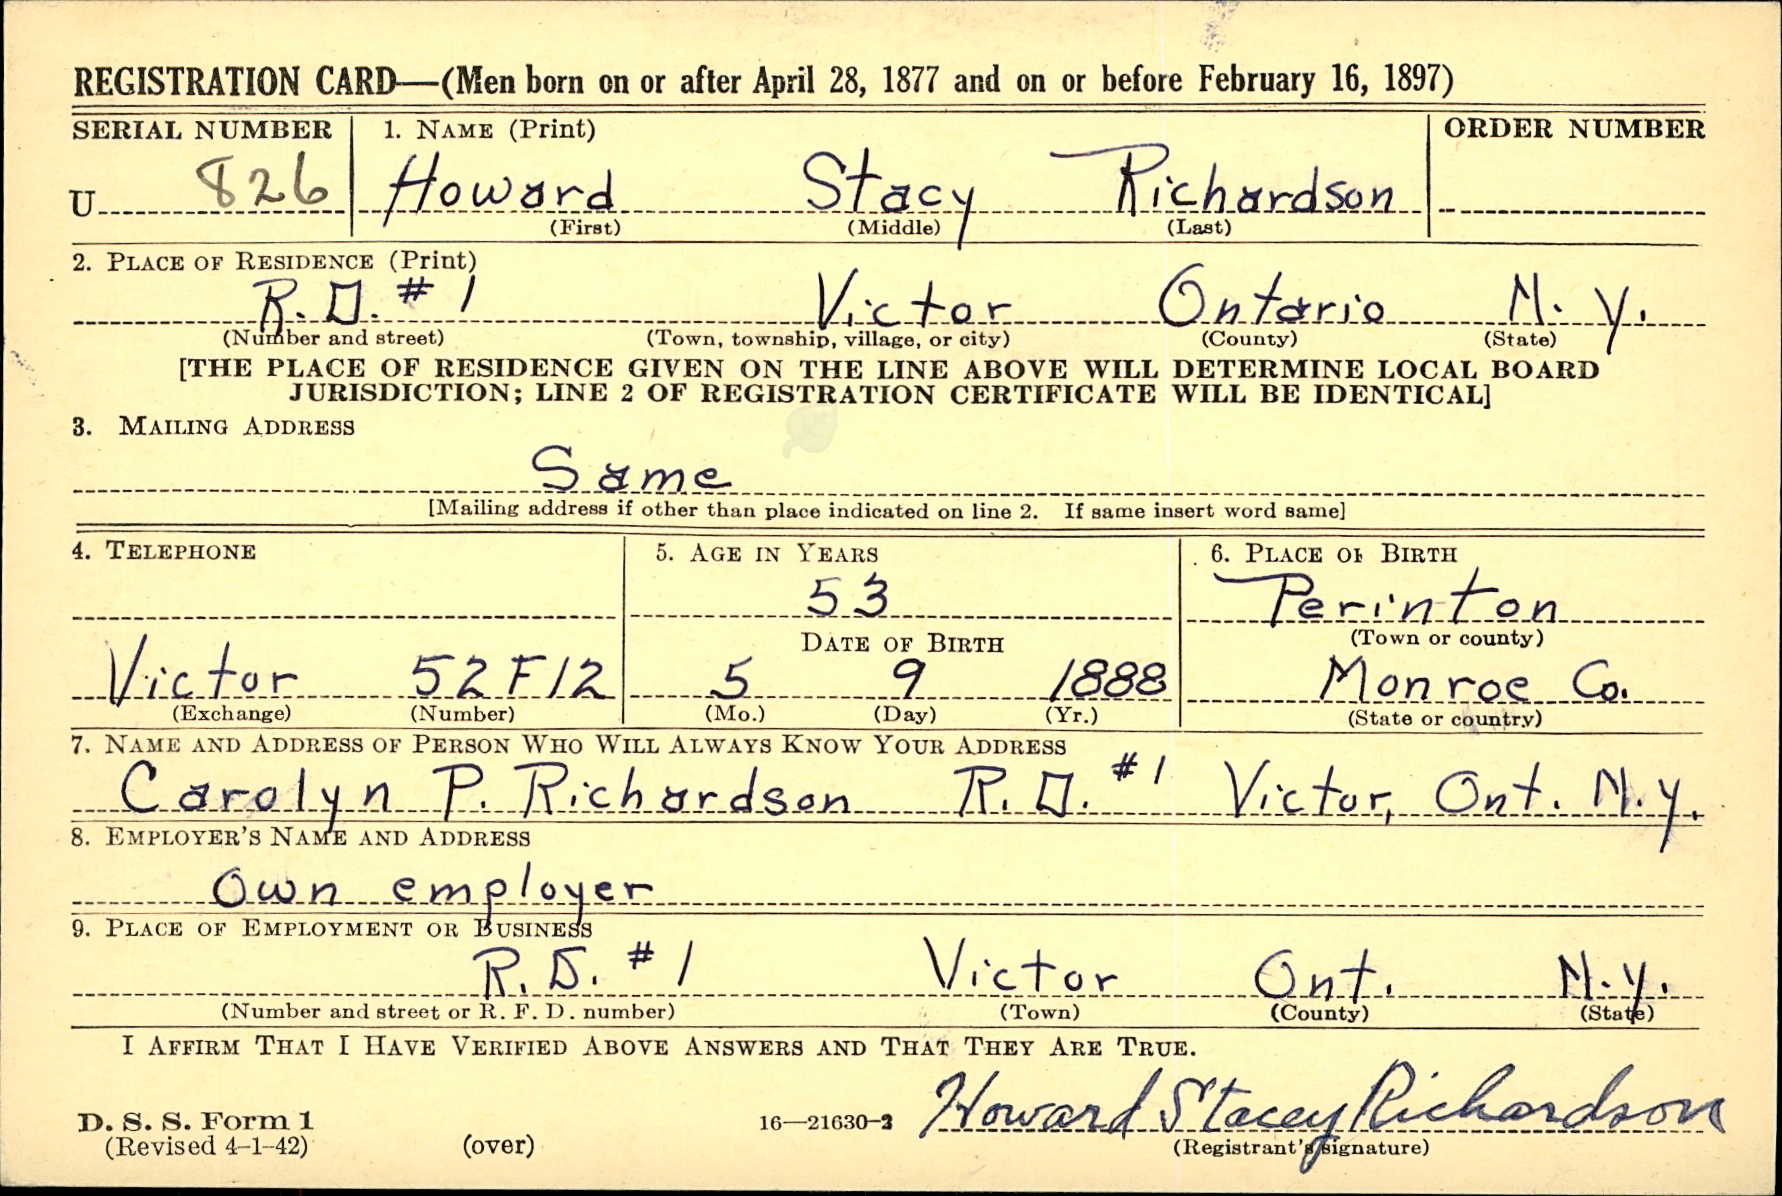 REGISTRATION CARD—(Men born on or after April 28, 1877 and on or before February 16, 1897)
SERIAL NUMBER 1. NAME (Print) ORDER NUMBER
U 826 Howard Stacy Richardson
(First) (Middle) (Last)
2. PLACE OF RESIDENCE (Print)
R.D. #1 Victor Ontario N.Y.
(Number and street) (Town, township, village, or city) (County) (State)
[THE PLACE OF RESIDENCE GIVEN ON THE LINE ABOVE WILL DETERMINE LOCAL BOARD
JURISDICTION; LINE 2 OF REGISTRATION CERTIFICATE WILL BE IDENTICAL]
3. MAILING ADDRESS
Same
[Mailing address if other than place indicated on line 2. If same insert word same]
4. TELEPHONE 5. AGE IN YEARS 6. PLACE OF BIRTH
53 Perinton
DATE OF BIRTH (Town or county)
Victor 52F12 5 9 1888 Monroe Co.
(Exchange) (Number) (Mo.) (Day) (Yr.) (State or country)
7. NAME AND ADDRESS OF PERSON WHO WILL ALWAYS KNOW YOUR ADDRESS
Carolyn P. Richardson R.D. #1 Victor, Ont. N.Y.
8. EMPLOYER'S NAME AND ADDRESS
Own employer
9. PLACE OF EMPLOYMENT OR BUSINESS
R.D. #1 Victor Ont. N.Y.
(Number and street or R. F. D. number) (Town) (County) (State)
I AFFIRM THAT I HAVE VERIFIED ABOVE ANSWERS AND THAT THEY ARE TRUE.
Howard Stacey Richardson
D. S. S. Form 1 16—21630-2
(Revised 4-1-42) (over) (Registrant's signature)